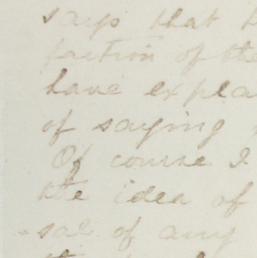 says that
faction of the
have expla
of saying
Of course I
the idea of
sal of any